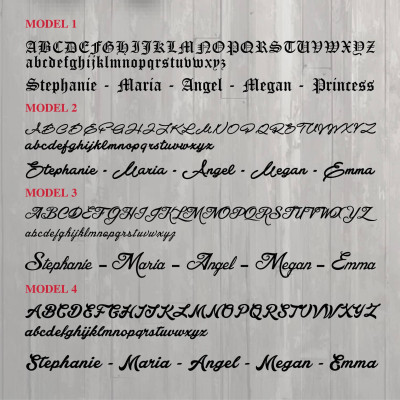 MODEL 1
ABCDEFGHIJKLMNOPQRSTUVWXYZ
abcdefghijklmnopqrstuvwxyz
Stephanie - Maria - Angel - Megan - Princess
MODEL 2
ABCDEFGHIJKLMNOPQRSTUVWXYZ
abcdefghijklmnopqrstuvwxyz
Stephanie - Maria - Angel - Megan - Emma
MODEL 3
ABCDEFGHIJKLMNOPQRSTUVWXYZ
abcdefghijklmnopqrstuvwxyz
Stephanie – Maria – Angel – Megan – Emma
MODEL 4
ABCDEFGHIJKLMNOPQRSTUVWXYZ
abcdefghijklmnopqrstuvwxyz
Stephanie - Maria - Angel - Megan - Emma